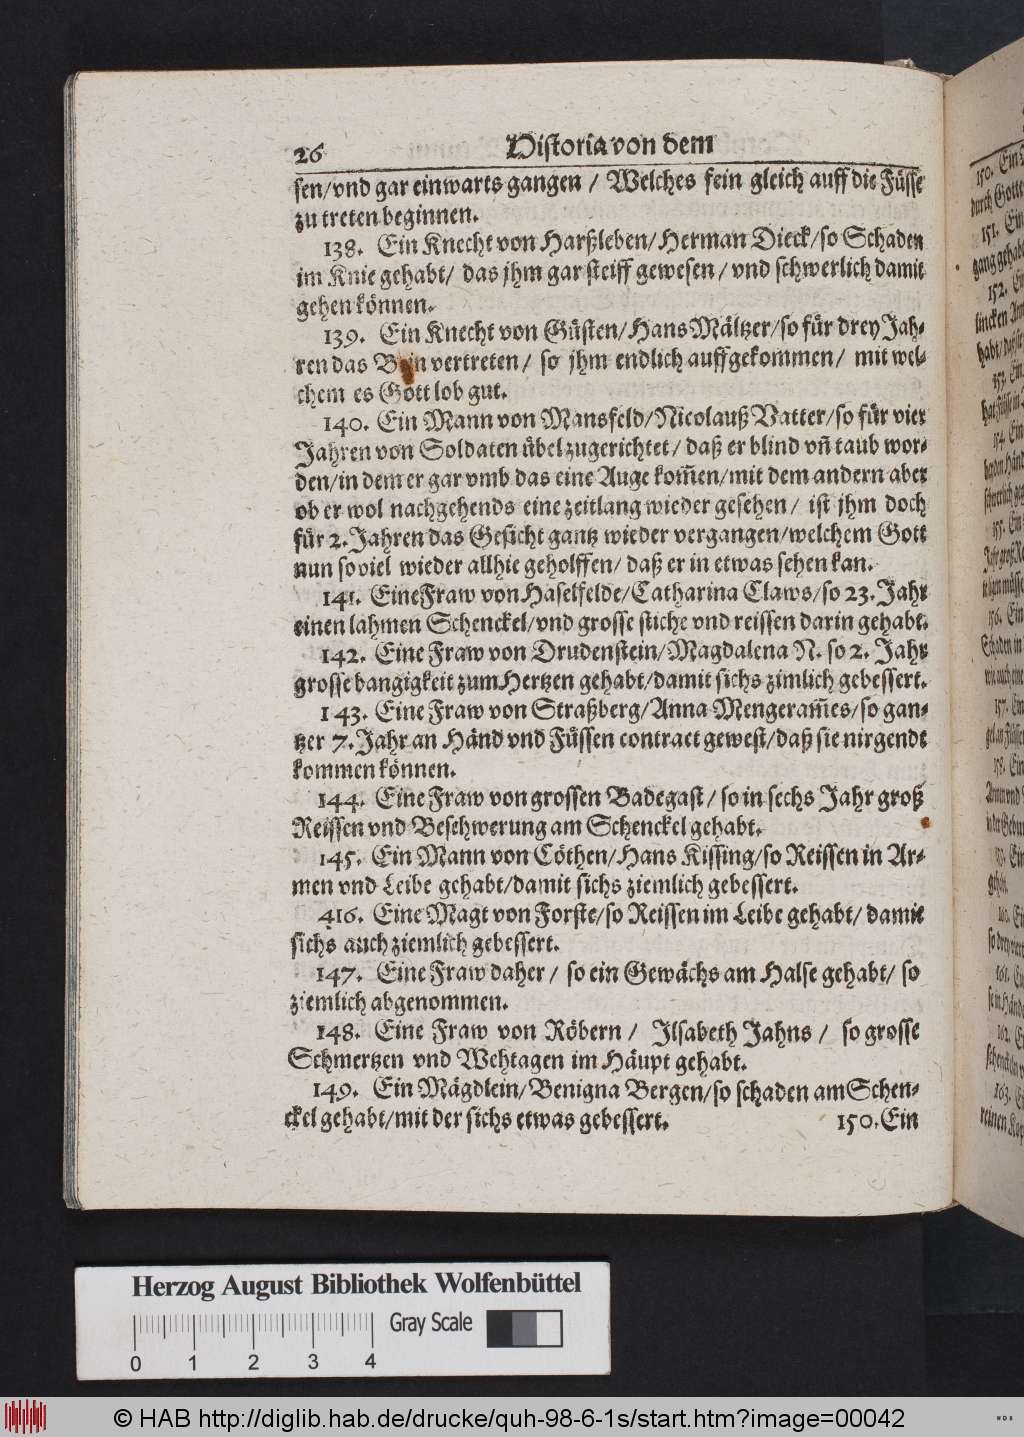 26 Historia von dem
sen/vnd gar einwarts gangen / Welches fein gleich auff die Füsse
zu treten beginnen.
138. Ein Knecht von Harßleben/Herman Dieck/so Schaden
im Knie gehabt/ das jhm gar steiff gewesen/vnd schwerlich damit
gehen können.
139. Ein Knecht von Güsten/Hans Mältzer/so für drey Jah-
ren das Bein vertreten/ so jhm endlich auffgekommen/ mit wel-
chem es Gott lob gut.
140. Ein Mann von Mansfeld/Nicolauß Vatter/so für vier
Jahren von Soldaten übel zugerichtet/ daß er blind vñ taub wor-
den/in dem er gar vmb das eine Auge kom̃en/mit dem andern aber
ob er wol nachgehends eine zeitlang wieder gesehen/ ist jhm doch
für 2. Jahren das Gesicht gantz wieder vergangen/welchem Gott
nun soviel wieder allhie geholffen/ daß er in etwas sehen kan.
141. Eine Fraw von Haselfelde/Catharina Claws/so 23. Jahr
einen lahmen Schenckel/vnd grosse stiche vnd reissen darin gehabt.
142. Eine Fraw von Drudenstein/Magdalena N. so 2. Jahr
grosse bangigkeit zum Hertzen gehabt/damit sichs zimlich gebessert.
143. Eine Fraw von Straßberg/Anna Mengeram̃es/so gan-
tzer 7. Jahr an Händ vnd Füssen contract gewest/daß sie nirgendt
kommen können.
144. Eine Fraw von grossen Badegast/so in sechs Jahr groß
Reissen vnd Beschwerung am Schenckel gehabt.
145. Ein Mann von Cöthen/Hans Kissing/so Reissen in Ar-
men vnd Leibe gehabt/damit sichs ziemlich gebessert.
416. Eine Magt von Forste/so Reissen im Leibe gehabt/ damit
sichs auch ziemlich gebessert.
147. Eine Fraw daher/ so ein Gewächs am Halse gehabt/ so
ziemlich abgenommen.
148. Eine Fraw von Röbern/ Ilsabeth Jahns/ so grosse
Schmertzen vnd Wehtagen im Häupt gehabt.
149. Ein Mägdlein/Benigna Bergen/so schaden am Schen-
ckel gehabt/mit der sichs etwas gebessert. 150. Ein
150. Ein
durch Gott
151. Ein
gang gehabt
152.
lincken
153. Ein
154. Ein
155. Ein
156. Ein
157. Ein
158. Ein
Herzog August Bibliothek Wolfenbüttel
Gray Scale
0 1 2 3 4
© HAB http://diglib.hab.de/drucke/quh-98-6-1s/start.htm?image=00042